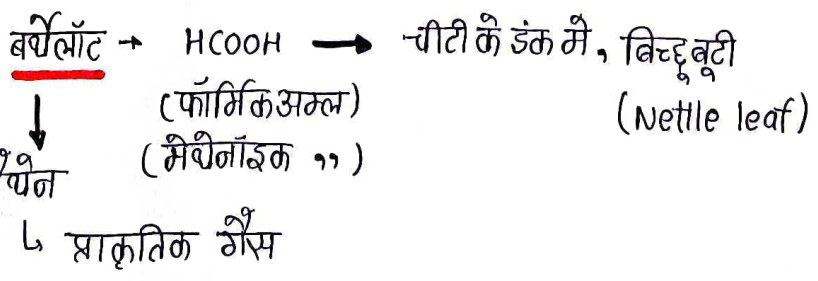 बर्थेलॉट → HCOOH → चीटी के डंक मे, बिच्छू बूटी
(फॉर्मिक अम्ल) (Nettle leaf)
(मेथेनॉइक ,,)
↳ प्राकृतिक गैस